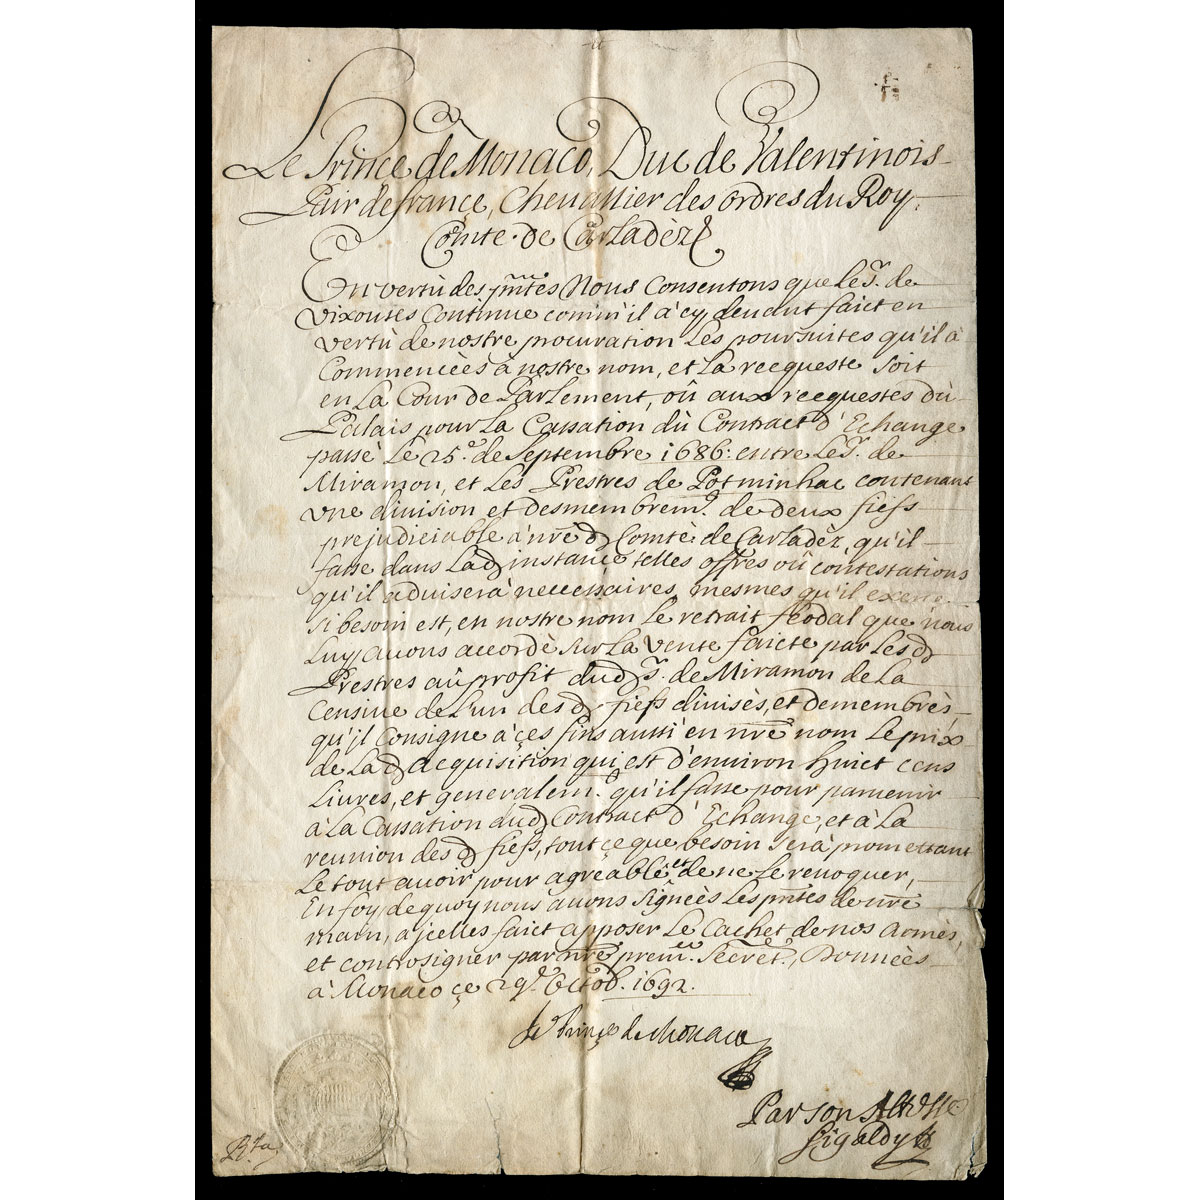 Le Prince de Monaco, Duc de Valentinois
Pair de françe, Chevallier des ordres du Roy,
Comte de Carladèz
En vertù des pn̄tes Nous Consentons que le Sr. de
Vixouses Continue comm'il à cy deuant faict en
vertù de nostre procuration Les poursuites qu'il à
Commencèes à nostre nom, et La recqueste soit
en La Cour de Parlement, où aux recquestes dù
Palais pour La Cassation dù Contract d'Echange
passè Le 25e. de Septembre 1686. entre Le Sr. de
Miramon, et Les Prestres de Potminhac contenant
vne division et desmembremt. de deux fiefs
prejudiciable à nr̄e d. Comtè de Carladèz, qu'il
fasse dans La d. instance telles offres où contestations
qu'il aduiserà necessaires, mesmes qu'il exerce
si besoin est, en nostre nom Le retrait féodal que nous
Luy auons accordè sur La vente faicte par Les d.
Prestres aù profit dud. Sr. de Miramon de La
Censiue de L'un des d. fiefs divisès, et demembrès,
qu'il Consigne à çes fins aussi en nr̄e nom Le prix
de La d. acquisition qui est d'enuiron huict cens
Liures, et generalemt. qu'il fasse pour paruenir
à La Cassation dud. Contract d'Echange, et à La
reunion des d. fiefs, tout çe que besoin serà promettant
Le tout auoir pour agreable et de ne Le reuoquer,
En foy de quoy nous auons signèès Les pn̄tes de nr̄e
main, à jcelles faict apposer Le Cachet de nos Armès,
et controsigner par nr̄e premer. Secretre., Donnèes
à Monaco çe 29e. Octob. 1692.
le Prinçe de Monaco
Par son Altesse
Sigaldy
Rta.